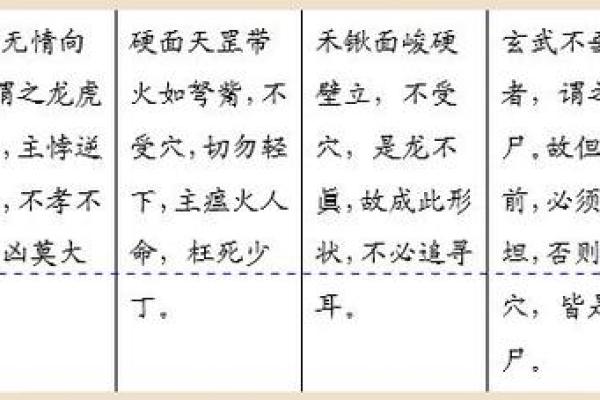 无情向
谓之龙虎
，主悖逆
，不孝不
凶莫大
硬面天罡带
火如弩觜，不
受穴，切勿轻
下，主瘟火人
命，枉死少
丁。
禾锹面峻硬
壁立，不受
穴，是龙不
眞，故成此形
状，不必追寻
耳。
玄武不垂
者，谓之
尸。故但
前，必须
坦，否则
穴，皆是
尸。